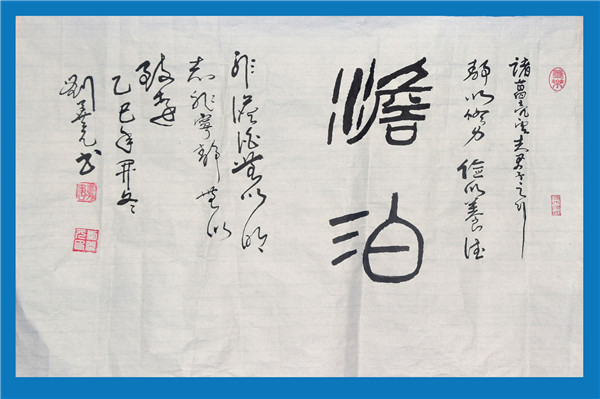 諸葛亮云夫君子之行
静以修身 儉以養德
澹泊
非澹泊無以明
志非寧静無以
致遠
乙巳年開冬
劉書